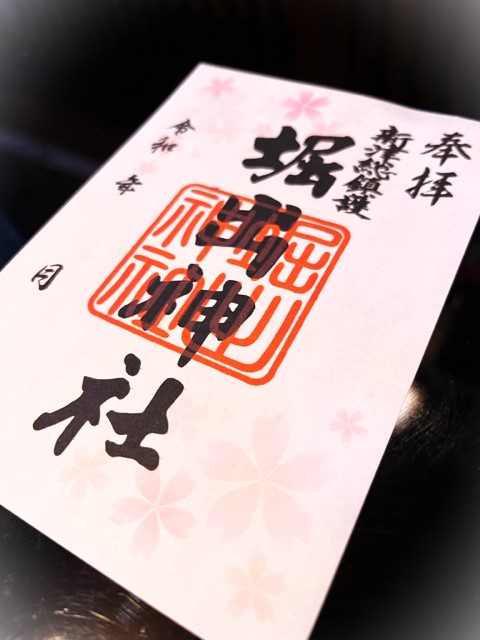 奉拝
新津総鎮護
堀出神社
堀出
神社
令和 年
月